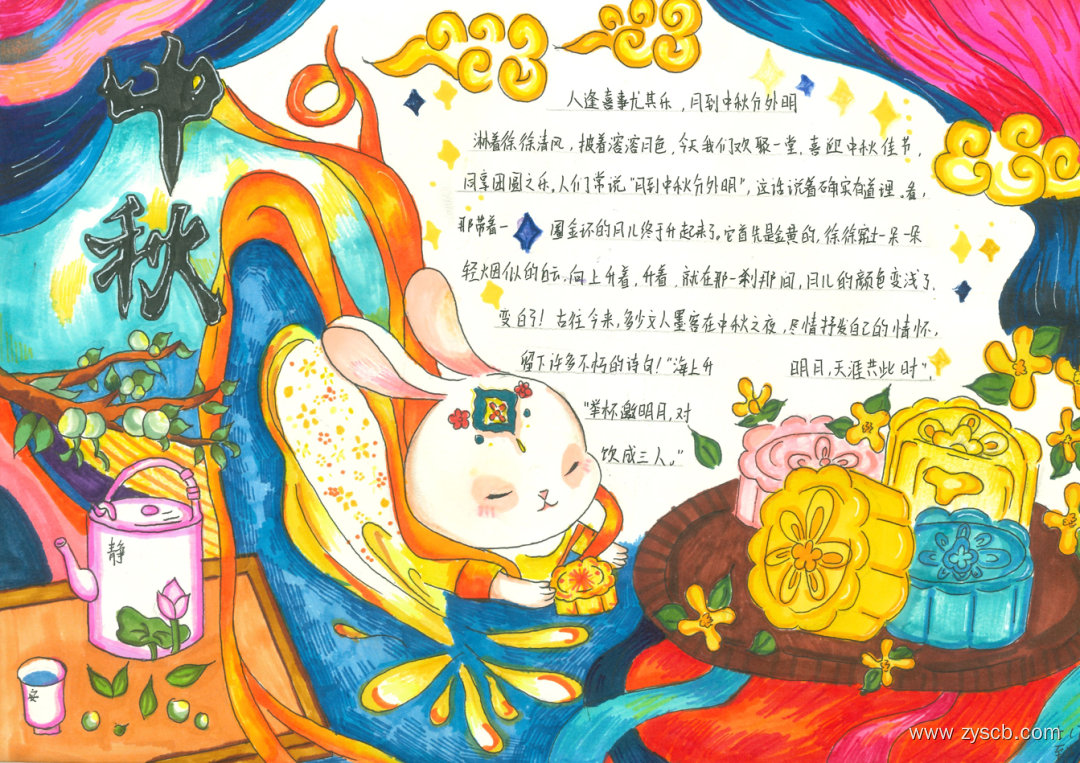 中秋
人逢喜事尤其乐，月到中秋分外明
淋着徐徐清风，披着溶溶月色，今天我们欢聚一堂，喜迎中秋佳节，
同享团圆之乐。人们常说"月到中秋分外明"，这话说着确实有道理。看，
那带着一圈金环的月儿终于升起来了。它首先是金黄的，徐徐穿过一朵一朵
轻烟似的白云，向上升着，升着，就在那一刹那间，月儿的颜色变浅了，
变白了！古往今来，多少文人墨客在中秋之夜，尽情抒发自己的情怀，
留下许多不朽的诗句！"海上升明月，天涯共此时"，
"举杯邀明月，对
饮成三人。"
静
安
www.zyscb.com